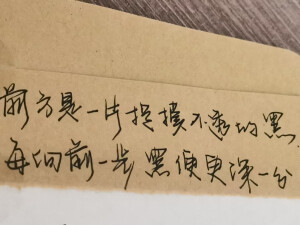 前方是一片捉摸不透的黑,
每向前一步 黑便更深一分